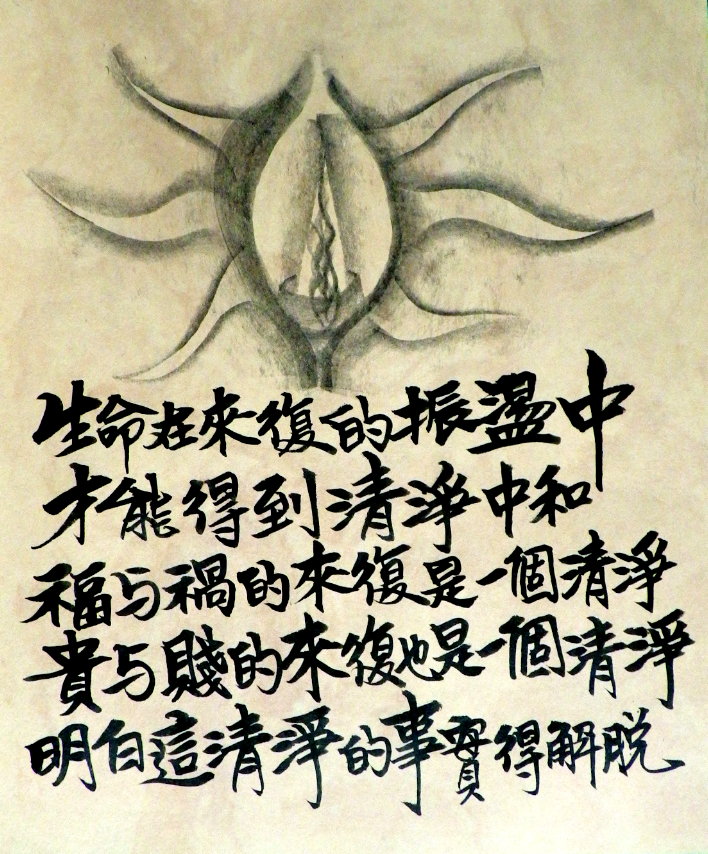 生命在來復的振盪中
才能得到清淨中和
福与禍的來復是一個清淨
貴与賤的來復也是一個清淨
明白這清淨的事實得解脫